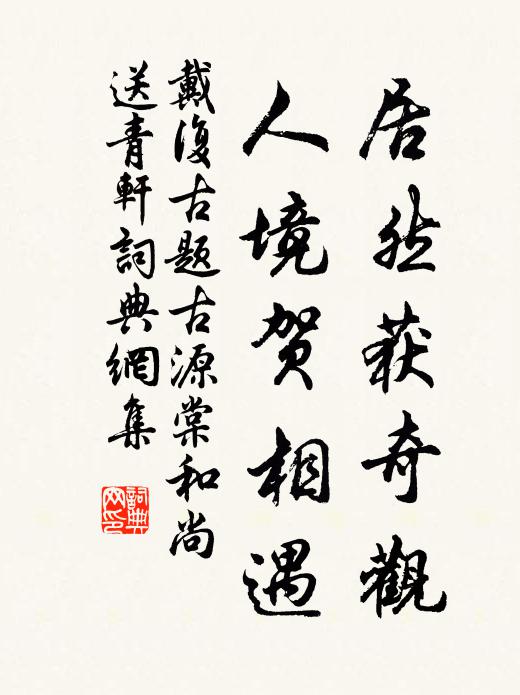 居然获奇觀
人境贺相遇
戴復古题古源棠和尚
送青軒詞典網集
詞典
网印